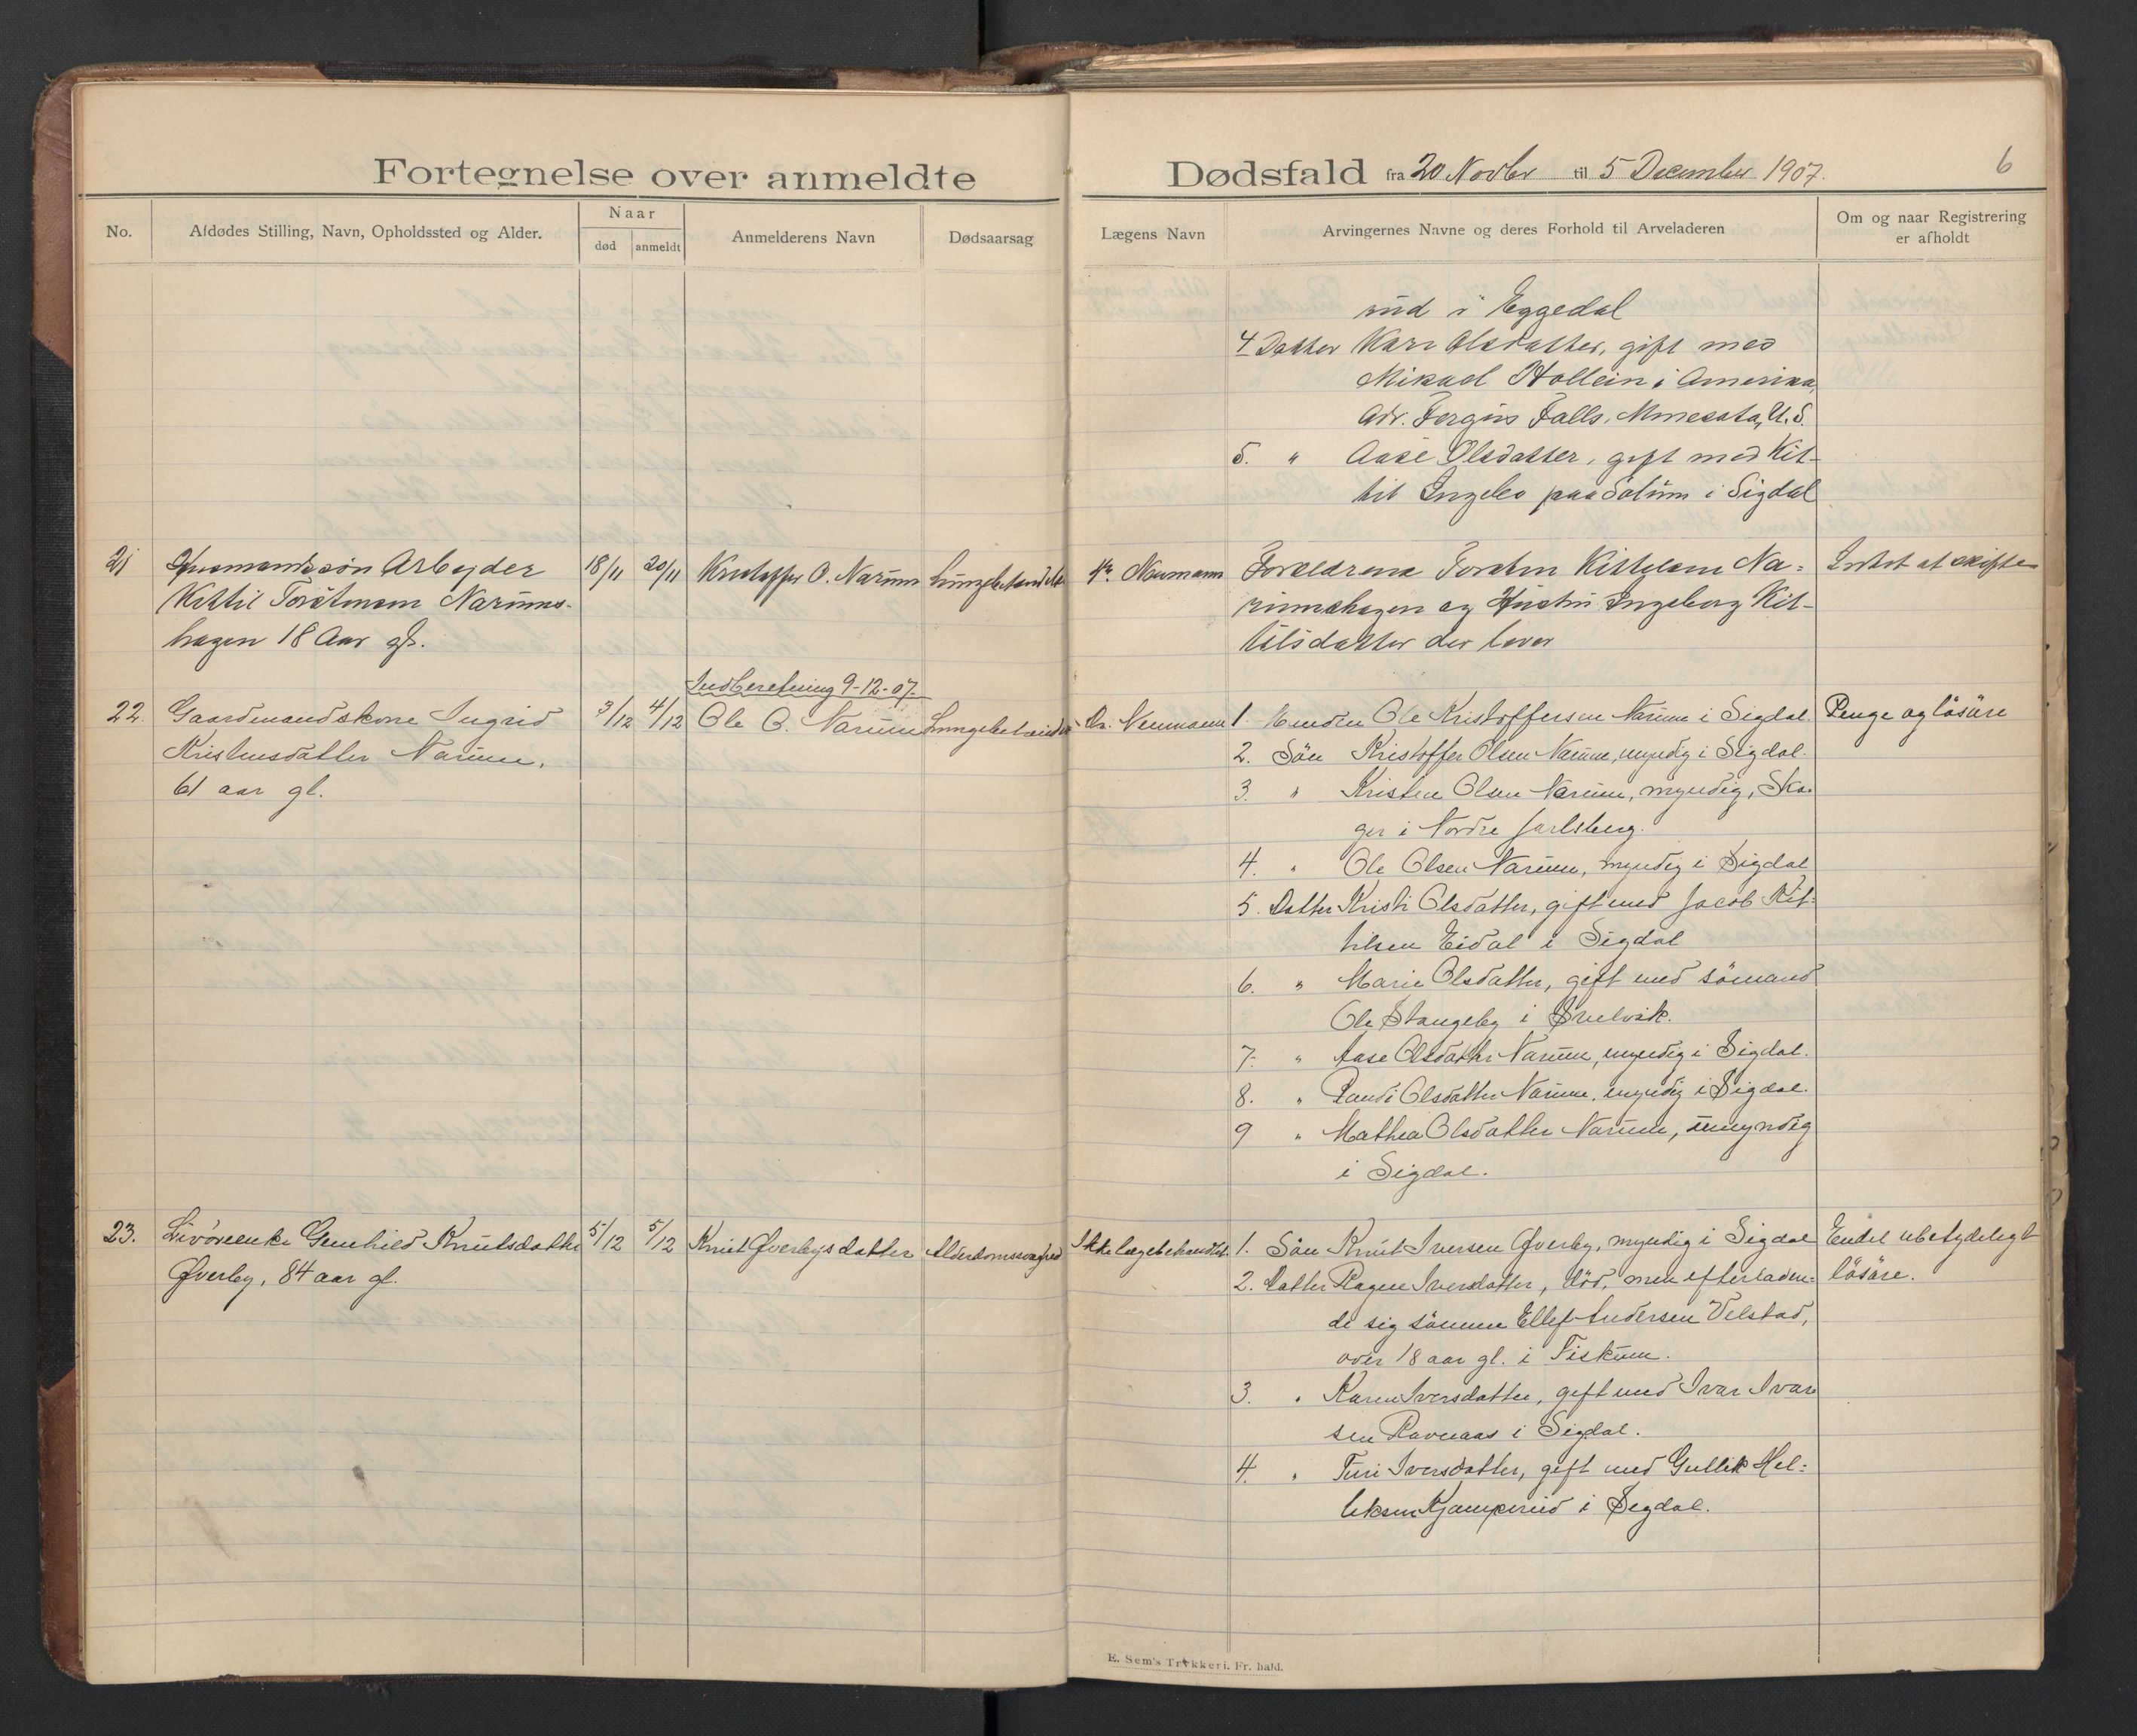 Fortegnelse over anmeldte
Dødsfald fra 20 Novbr til 5 December 1907.
6
No.
Afdødes Stilling, Navn, Opholdssted og Alder.
Naar
død
anmeldt
Anmelderens Navn
Dødsaarsag
Lægens Navn
Arvingernes Navne og deres Forhold til Arveladeren
Om og naar Registrering
er afholdt
rud i Eggedal
4 Datter Kari Olsdatter, gift med
Mikael Hollein i Amerika,
Adr. Fergus Falls, Minesota, U.S.
5. " Aase Olsdatter, gift med Kit-
til Ingelso paa Solum i Sigdal
21 Husmandssøn Arbejder 18/11 20/11 Kristoffer O. Narum Lungebetændelse
Kittil Torstensen Narums-
hagen 18 Aar gl.
Dr. Neumann Forældrene Torsten Kittelsen Na=
rumshagen og Hustru Ingeborg Kit-
tilsdatter der lever
Intet at skifte
Indberetning 9-12-07.
22. Gaardmandskone Ingrid 3/12 4/12 Ole O. Narum Lungebetændelse
Kristensdatter Narum,
61 aar gl.
Dr. Neumann 1. Manden Ole Kristoffersen Narum i Sigdal
2. Sön Kristoffer Olsen Narum, myndig i Sigdal.
3. " Kristen Olsen Narum, myndig, Sko-
ger i Nordre Jarlsberg.
4. " Ole Olsen Narum, myndig i Sigdal
5. Datter Kristi Olsdatter, gift med Jacob Kit=
tilsen Eidal i Sigdal
6. " Marie Olsdatter, gift med sömand
Ole Stangeby i Svelvik.
7. " Aase Olsdatter Narum, myndig i Sigdal.
8. " Randi Olsdatter Narum, myndig i Sigdal.
9 " Mathea Olsdatter Narum, umyndig
i Sigdal.
Penge og lösöre
23. Livöreenke Gunhild Knutsdatter 5/12 5/12 Knut Øverbys datter Alderdomssvaghed
Øverby, 84 aar gl.
Ikke lægebehandlet. 1. Sön Knut Iversen Øverby, myndig i Sigdal
2. Datter Ragne Iversdatter, död, men efterladen=
de sig sönnen Ellef Andersen Velstad,
over 18 aar gl. i Fiskum.
3. " Karen Iversdatter, gift med Ivar Ivar
sen Ravnaas i Sigdal.
4. " Turi Iversdatter, gift med Gullik Hel=
leksen Kjamperud i Sigdal.
Endel ubetydeligt
lösöre.
E. Sem's Trykkeri. Fr. hald.